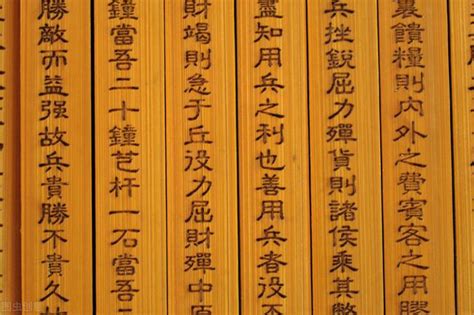 裏饋糧則內外之費賓客之用
兵挫銳屈力殫貨則諸侯乘其弊
盡知用兵之利也善用兵者役不
財竭則急于丘役力屈財殫中原
鐘當吾二十鐘芑杆一石當吾二
勝敵而益强故兵貴勝不貴久故